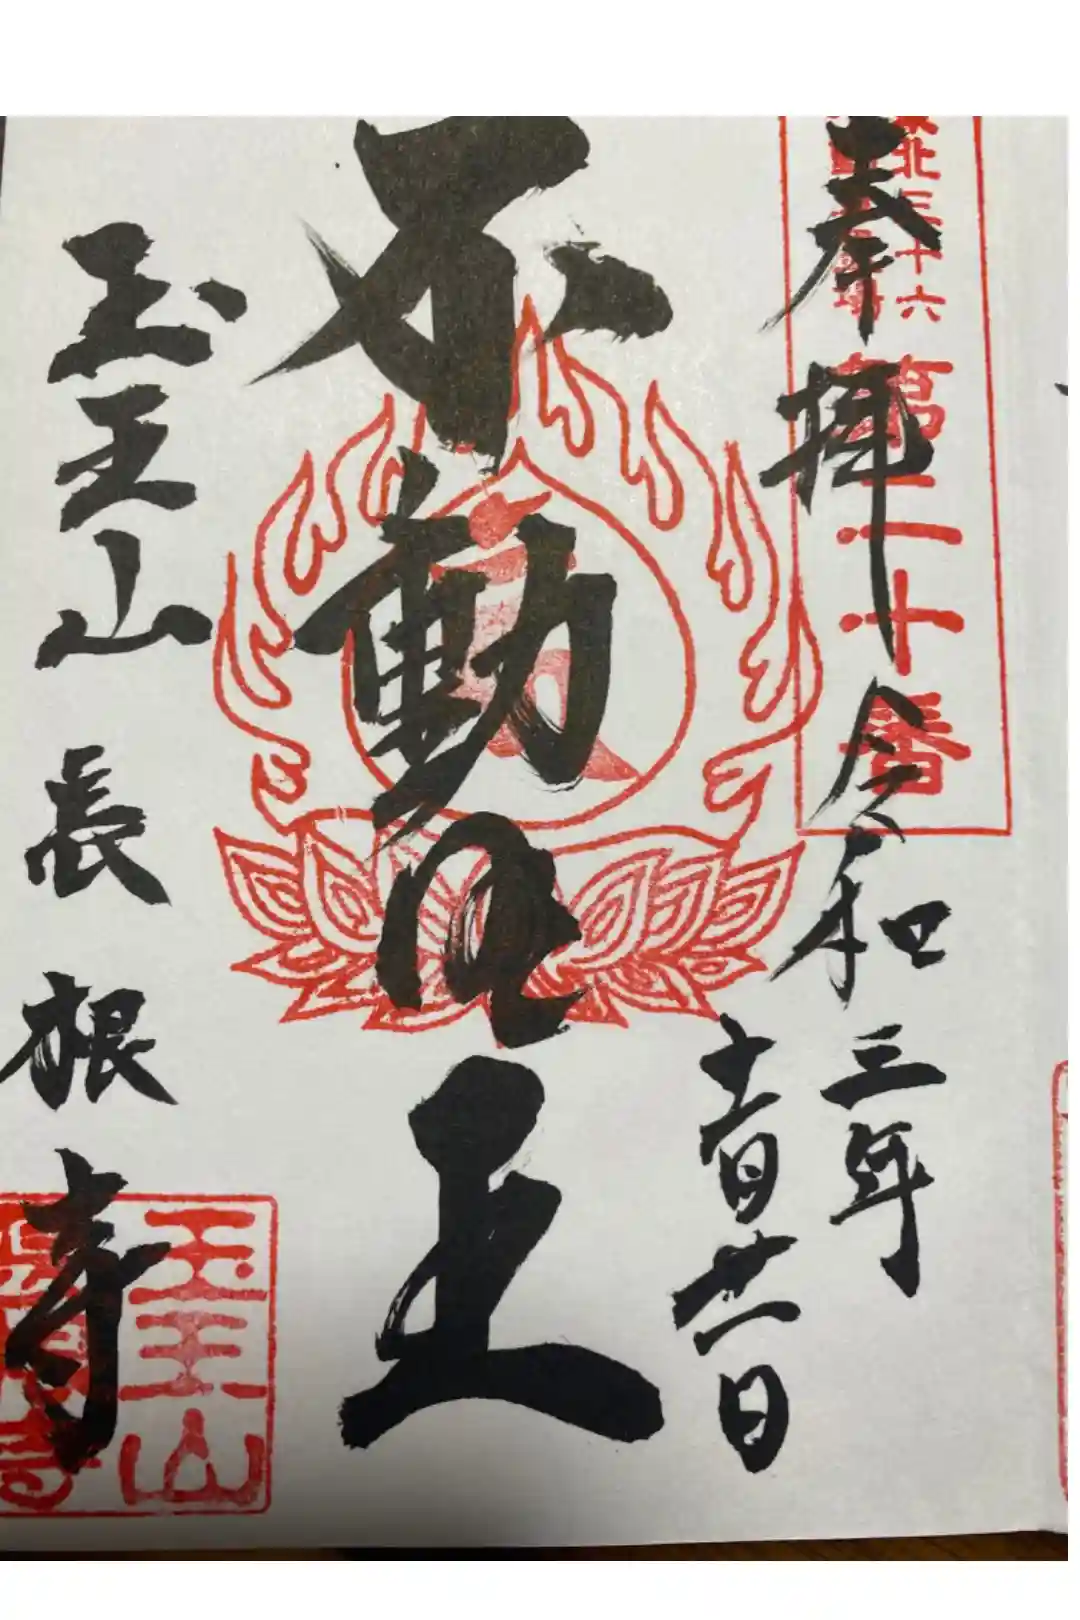 奉拝
北三十六
第二十番
令和三年
十一月廿一日
不動明王
玉王山
長根寺
玉王山